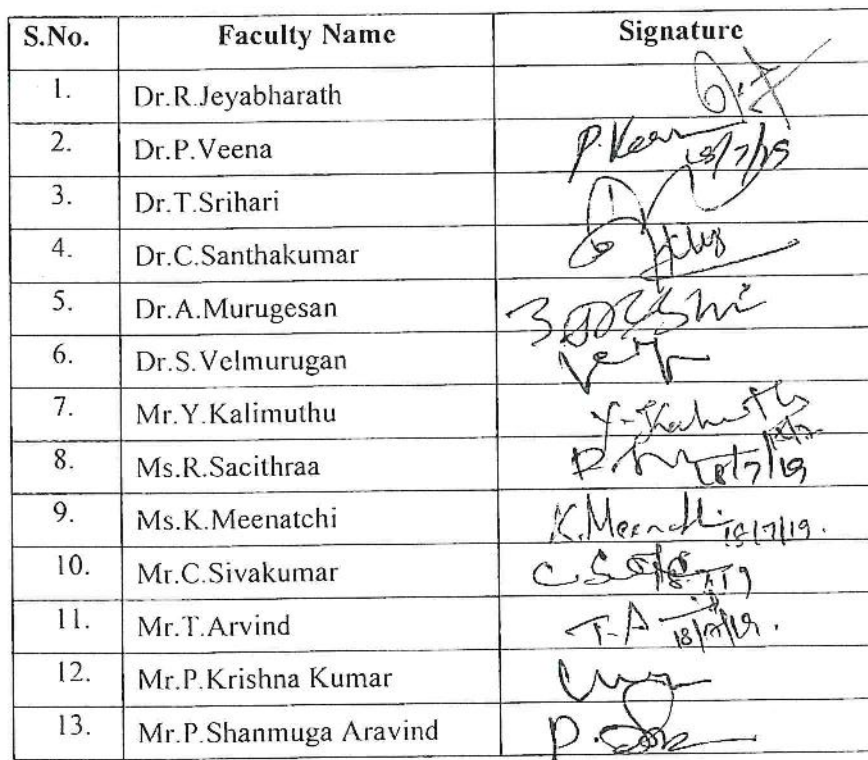 S.No. Faculty Name Signature
1. Dr.R.Jeyabharath
2. Dr.P.Veena P.Veena 18/7/19
3. Dr.T.Srihari
4. Dr.C.Santhakumar
5. Dr.A.Murugesan
6. Dr.S.Velmurugan
7. Mr.Y.Kalimuthu
8. Ms.R.Sacithraa 18/7/19
9. Ms.K.Meenatchi K.Meenatchi 18/7/19.
10. Mr.C.Sivakumar
11. Mr.T.Arvind T.A 18/7/19.
12. Mr.P.Krishna Kumar
13. Mr.P.Shanmuga Aravind